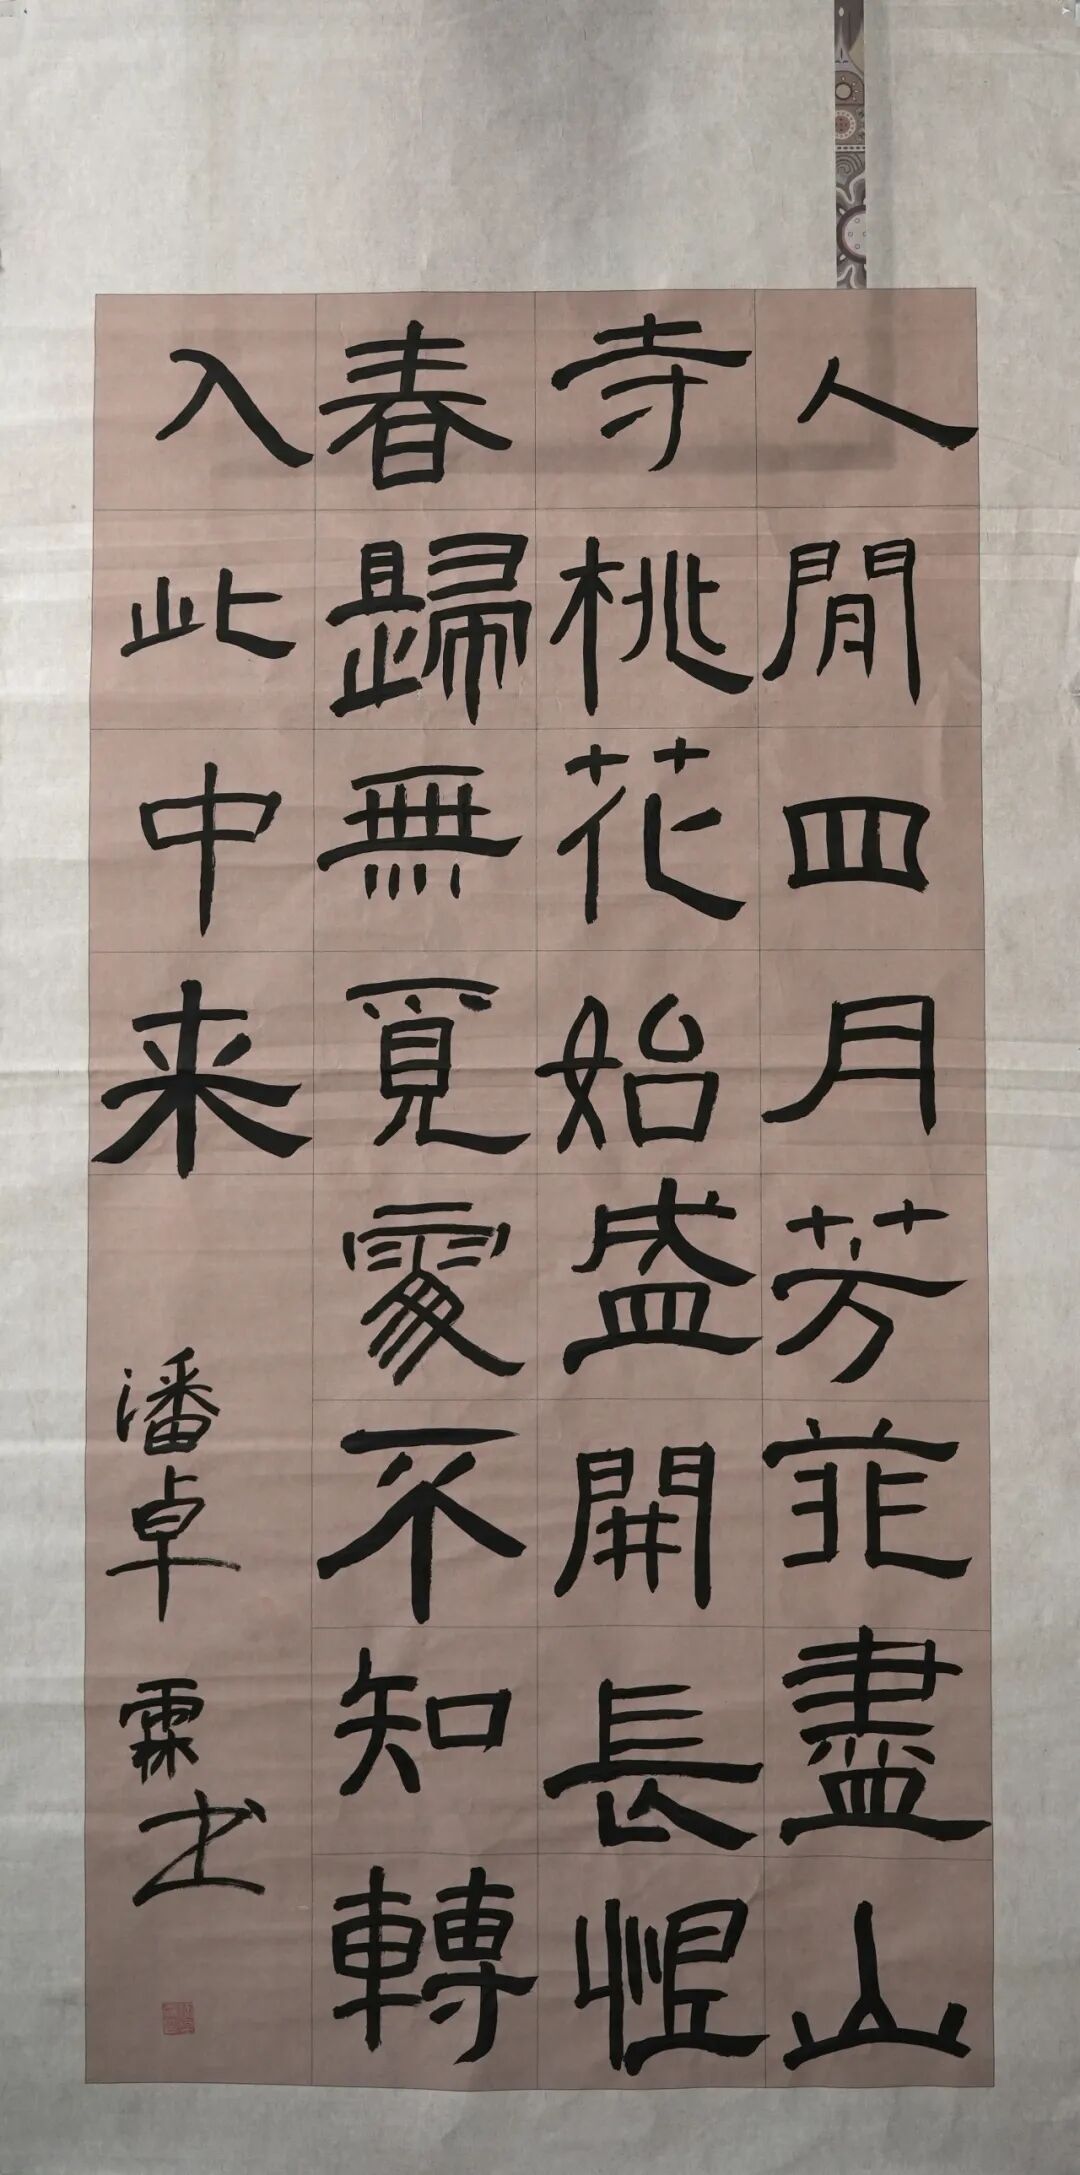 人間四月芳菲盡山
寺桃花始盛開長恨
春歸無覓處不知轉
入此中来
潘卓霖书